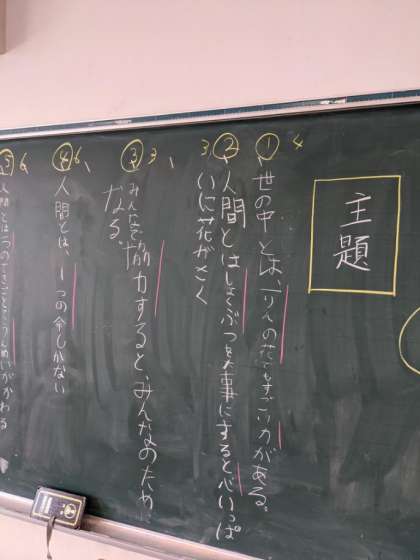 主題
① 4
世の中とは、一りんの花でもすごい力がある。
② 3
人間とはしょくぶつを大事にすると心いっぱ
いに花がさく
③ 3
みんなで協力すると、みんなのため
なる。
④ 6
人間とは、1つの命しかない
⑤ 6
人間とは一つのできごとでうんめいがかわる